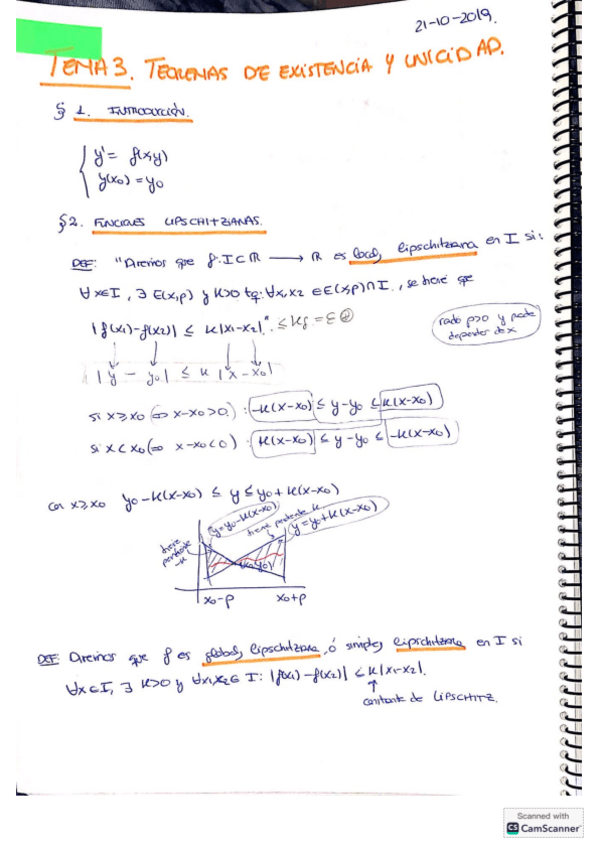 21-10-2019.
TEMA 3. TEOREMAS DE EXISTENCIA Y UNICIDAD.
§ 1. INTRODUCCIÓN.
y' = f(x,y)
y(x₀) = y₀
§2. FUNCIONES LIPSCHITZIANAS.
DEF: "Diremos que f: I⊂ℝ ⟶ ℝ es local lipschitziana en I si:
∀x∈I, ∃ E(x,ρ) y K>0 tq: ∀x₁,x₂ ∈ E(x,ρ)∩I., se tiene que
|f(x₁)-f(x₂)| ≤ K|x₁-x₂|". ≤ Kδ = ε
radio ρ>0 y puede depender de x
|y - y₀| ≤ K |x - x₀|
si x≥x₀ (⇔ x-x₀>0) : -K(x-x₀) ≤ y-y₀ ≤ K(x-x₀)
si x<x₀ (⇔ x-x₀<0) : K(x-x₀) ≤ y-y₀ ≤ -K(x-x₀)
Con x≥x₀ y₀-K(x-x₀) ≤ y ≤ y₀+K(x-x₀)
y=y₀-K(x-x₀)
tiene pendiente K
y=y₀+K(x-x₀)
tiene pendiente -K
(x₀,y₀)
x₀-ρ x₀+ρ
DEF: Diremos que f es global lipschitziana, ó simple lipschitziana en I si
∀x∈I, ∃ K>0 y ∀x₁,x₂∈ I: |f(x₁)-f(x₂)| ≤ K|x₁-x₂|.
constante de LIPSCHITZ.
Scanned with
CS CamScanner